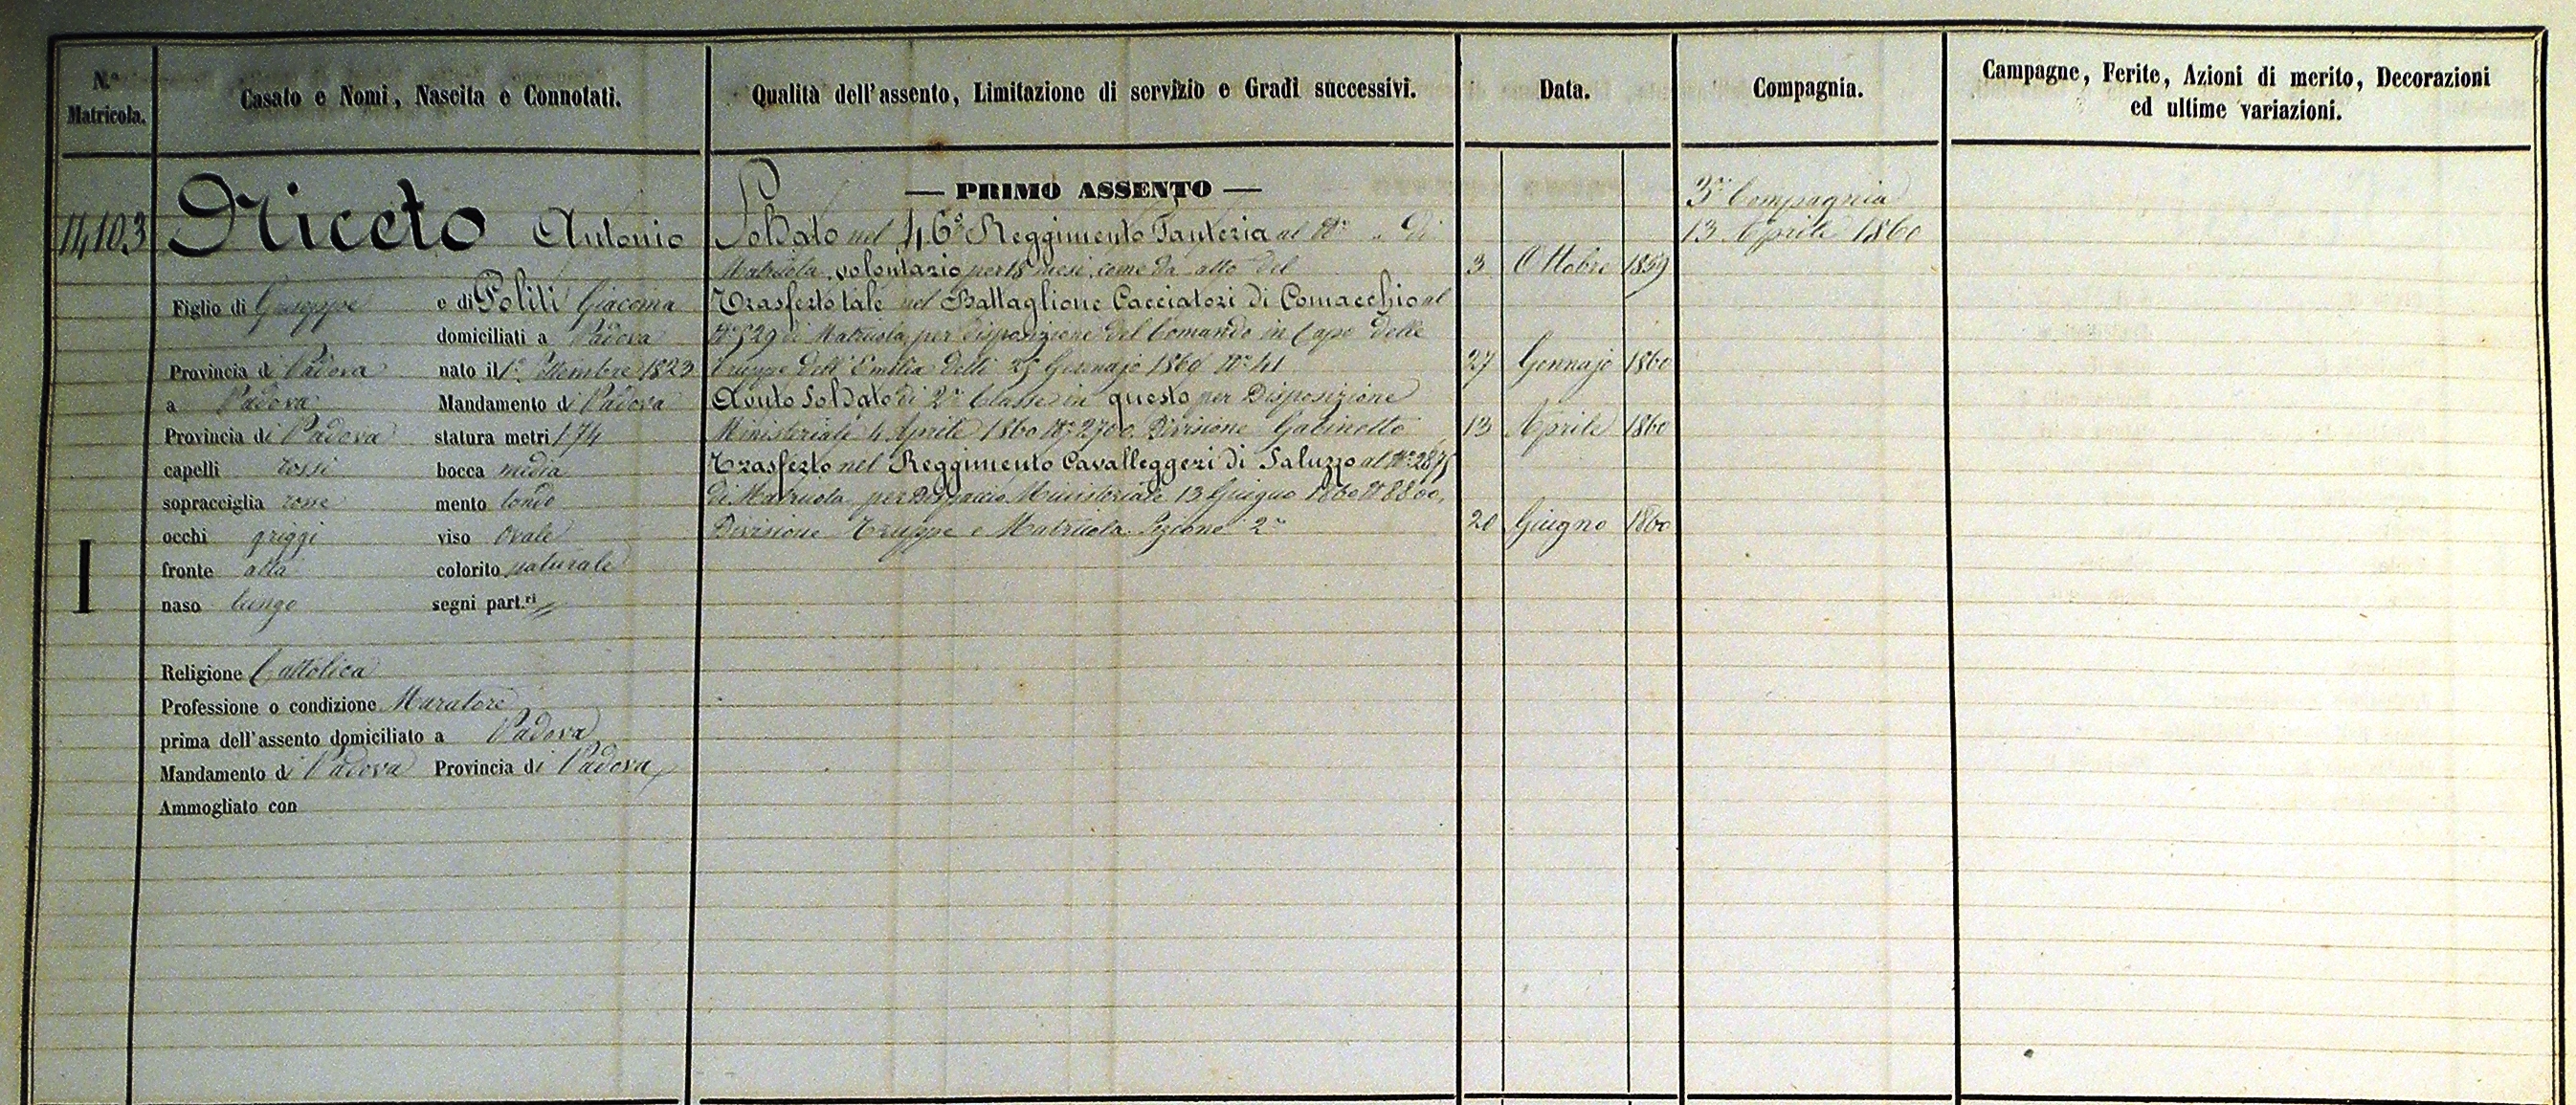 N.° Matricola.
Casato e Nomi, Nascita e Connotati.
Qualità dell'assento, Limitazione di servizio e Gradi successivi.
Data.
Compagnia.
Campagne, Ferite, Azioni di merito, Decorazioni
ed ultime variazioni.
14103
Niceto Antonio
Figlio di Giuseppe e di Politi Giacoma
domiciliati a Padova
Provincia di Padova nato il 1° Settembre 1823
a Padova Mandamento di Padova
Provincia di Padova statura metri 1.74
capelli rossi bocca media
sopracciglia rosse mento tondo
occhi griggi viso ovale
I
fronte alta colorito naturale
naso lungo segni part.ri "
Religione Cattolica
Professione o condizione Muratore
prima dell'assento domiciliato a Padova
Mandamento di Padova Provincia di Padova
Ammogliato con
— PRIMO ASSENTO —
Soldato nel 46° Reggimento Fanteria al N° " di
Matricola, volontario per 18 mesi come da atto del 3 Ottobre 1859
Trasferto tale nel Battaglione Cacciatori di Comacchio al
N° 529 di Matricola per disposizione del Comando in Capo delle
Truppe dell'Emilia delli 25 Gennajo 1860 N° 41 27 Gennajo 1860
Avuto Soldato di 2a Classe in questo per Disposizione
Ministeriale 4 Aprile 1860 N° 2700. Divisione Gabinetto 13 Aprile 1860
Trasferto nel Reggimento Cavalleggeri di Saluzzo al N° 2875
di Matricola per Dispaccio Ministeriale 13 Giugno 1860 N° 8800,
Divisione Truppe e Matricola Sezione 2a 20 Giugno 1860
3a Compagnia
13 Aprile 1860